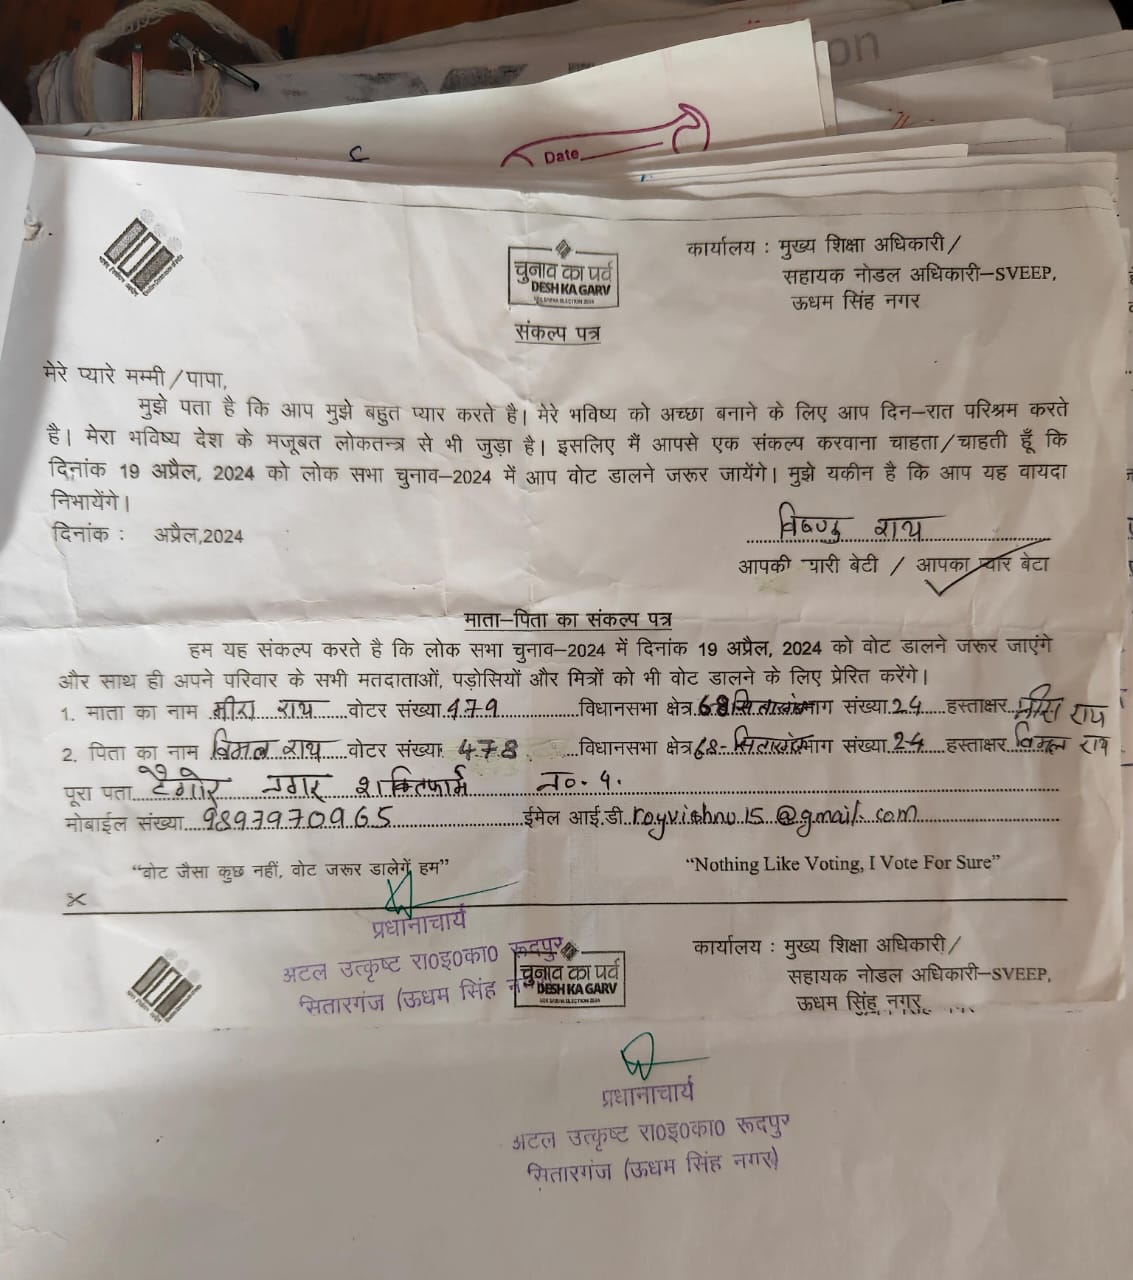 on
Date
कार्यालय : मुख्य शिक्षा अधिकारी/
सहायक नोडल अधिकारी–SVEEP,
ऊधम सिंह नगर
चुनाव का पर्व
DESH KA GARV
LOK SABHA ELECTION 2024
संकल्प पत्र
मेरे प्यारे मम्मी/पापा,
मुझे पता है कि आप मुझे बहुत प्यार करते है। मेरे भविष्य को अच्छा बनाने के लिए आप दिन–रात परिश्रम करते
है। मेरा भविष्य देश के मजूबत लोकतन्त्र से भी जुड़ा है। इसलिए मैं आपसे एक संकल्प करवाना चाहता/चाहती हूँ कि
दिनांक 19 अप्रैल, 2024 को लोक सभा चुनाव–2024 में आप वोट डालने जरूर जायेंगे। मुझे यकीन है कि आप यह वायदा
निभायेंगे।
दिनांक : अप्रैल,2024
विष्णु राय
आपकी प्यारी बेटी / आपका प्यार बेटा
माता–पिता का संकल्प पत्र
हम यह संकल्प करते है कि लोक सभा चुनाव–2024 में दिनांक 19 अप्रैल, 2024 को वोट डालने जरूर जाएंगे
और साथ ही अपने परिवार के सभी मतदाताओं, पड़ोसियों और मित्रों को भी वोट डालने के लिए प्रेरित करेंगे।
1. माता का नाम मीरा राय वोटर संख्या 479 विधानसभा क्षेत्र 68 सितारगंज भाग संख्या 24 हस्ताक्षर मीरा राय
2. पिता का नाम बिमल राय वोटर संख्या 478 विधानसभा क्षेत्र 68-सितारगंज भाग संख्या 24 हस्ताक्षर बिमल राय
पूरा पता टैगोर नगर शक्तिफार्म न०. 4.
मोबाईल संख्या 9897970965 ईमेल आई.डी royvishnu.15@gmail.com
“वोट जैसा कुछ नहीं, वोट जरूर डालेगें हम” “Nothing Like Voting, I Vote For Sure”
प्रधानाचार्य
अटल उत्कृष्ट रा0इ0का0 रूदपुर
सितारगंज (ऊधम सिंह
चुनाव का पर्व
DESH KA GARV
LOK SABHA ELECTION 2024
कार्यालय : मुख्य शिक्षा अधिकारी/
सहायक नोडल अधिकारी–SVEEP,
ऊधम सिंह नगर
प्रधानाचार्य
अटल उत्कृष्ट रा0इ0का0 रूदपुर
सितारगंज (ऊधम सिंह नगर)